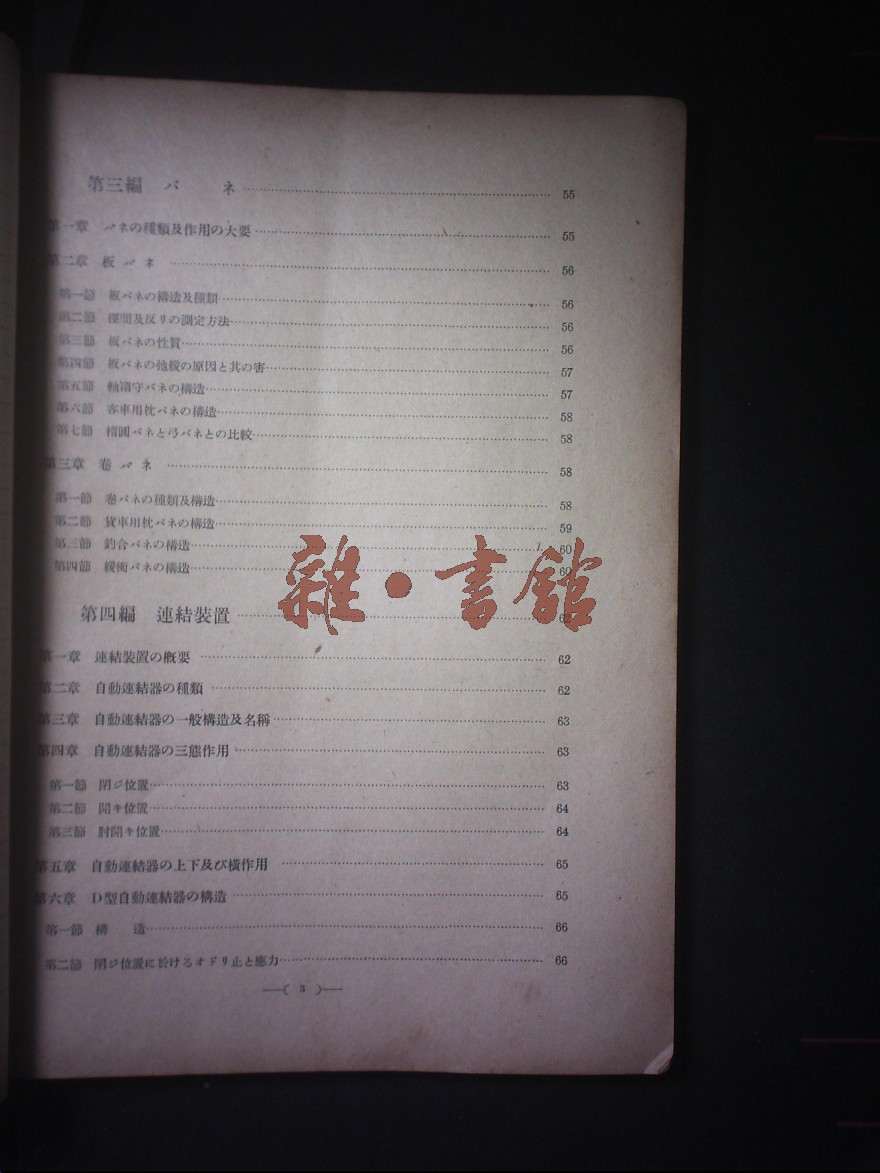 第三編 バネ 55
第一章 バネの種類及作用の大要 55
第二章 板バネ 56
第一節 板バネの構造及種類 56
第二節 徑間及反リの測定方法 56
第三節 板バネの性質 56
第四節 板バネの弛緩の原因と其の害 57
第五節 軸箱守バネの構造 57
第六節 客車用枕バネの構造 58
第七節 楕圓バネと弓バネとの比較 58
第三章 卷バネ 58
第一節 卷バネの種類及構造 58
第二節 貨車用枕バネの構造 59
第三節 釣合バネの構造 60
第四節 緩衝バネの構造 60
雜·書館
第四編 連結裝置 62
第一章 連結裝置の概要 62
第二章 自動連結器の種類 62
第三章 自動連結器の一般構造及名稱 63
第四章 自動連結器の三態作用 63
第一節 閉ジ位置 63
第二節 開キ位置 64
第三節 肘開キ位置 64
第五章 自動連結器の上下及び橫作用 65
第六章 D型自動連結器の構造 65
第一節 構造 66
第二節 閉ジ位置に於けるオドリ止と應力 66
—( 3 )—